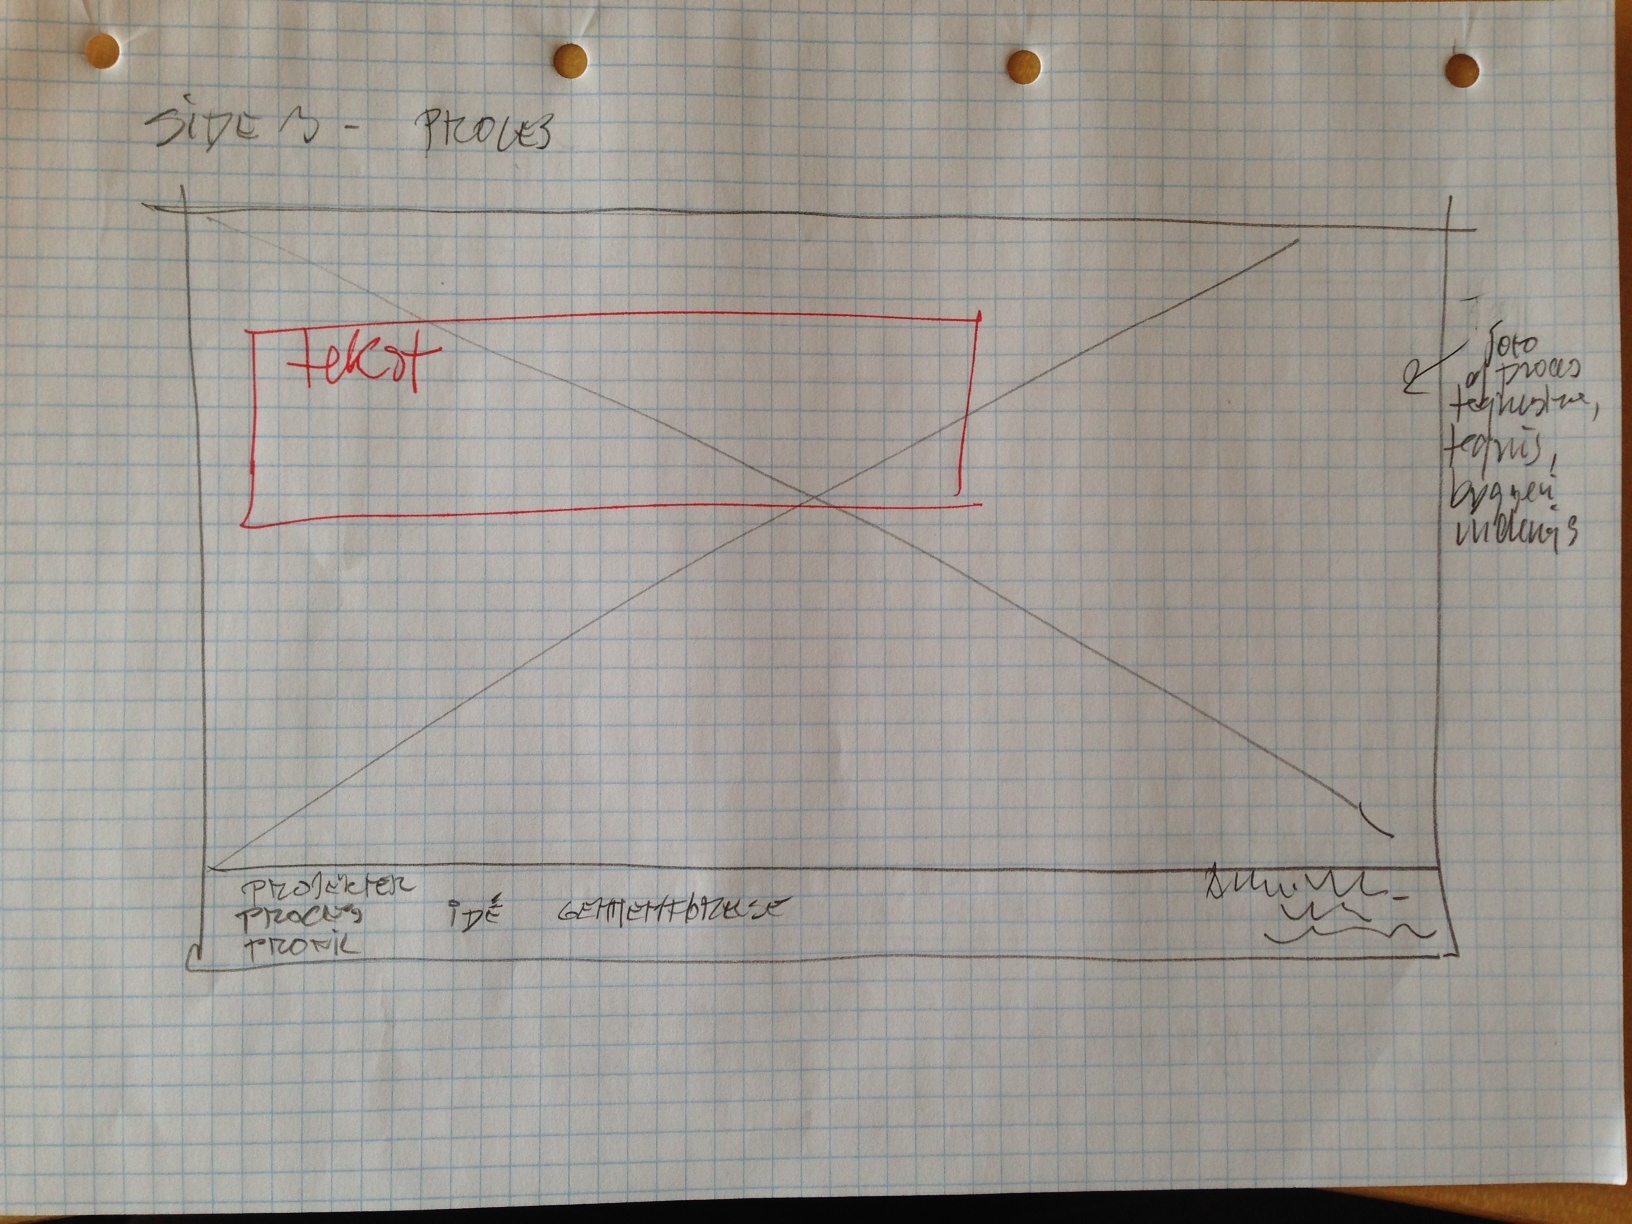 SIDE 3 - PROCES
tekst
foto
af proces
tegnestue,
tegnis,
byggeri
PROJEKTER
PROCES
PROFIL
IDÉ GENNEMFØRELSE